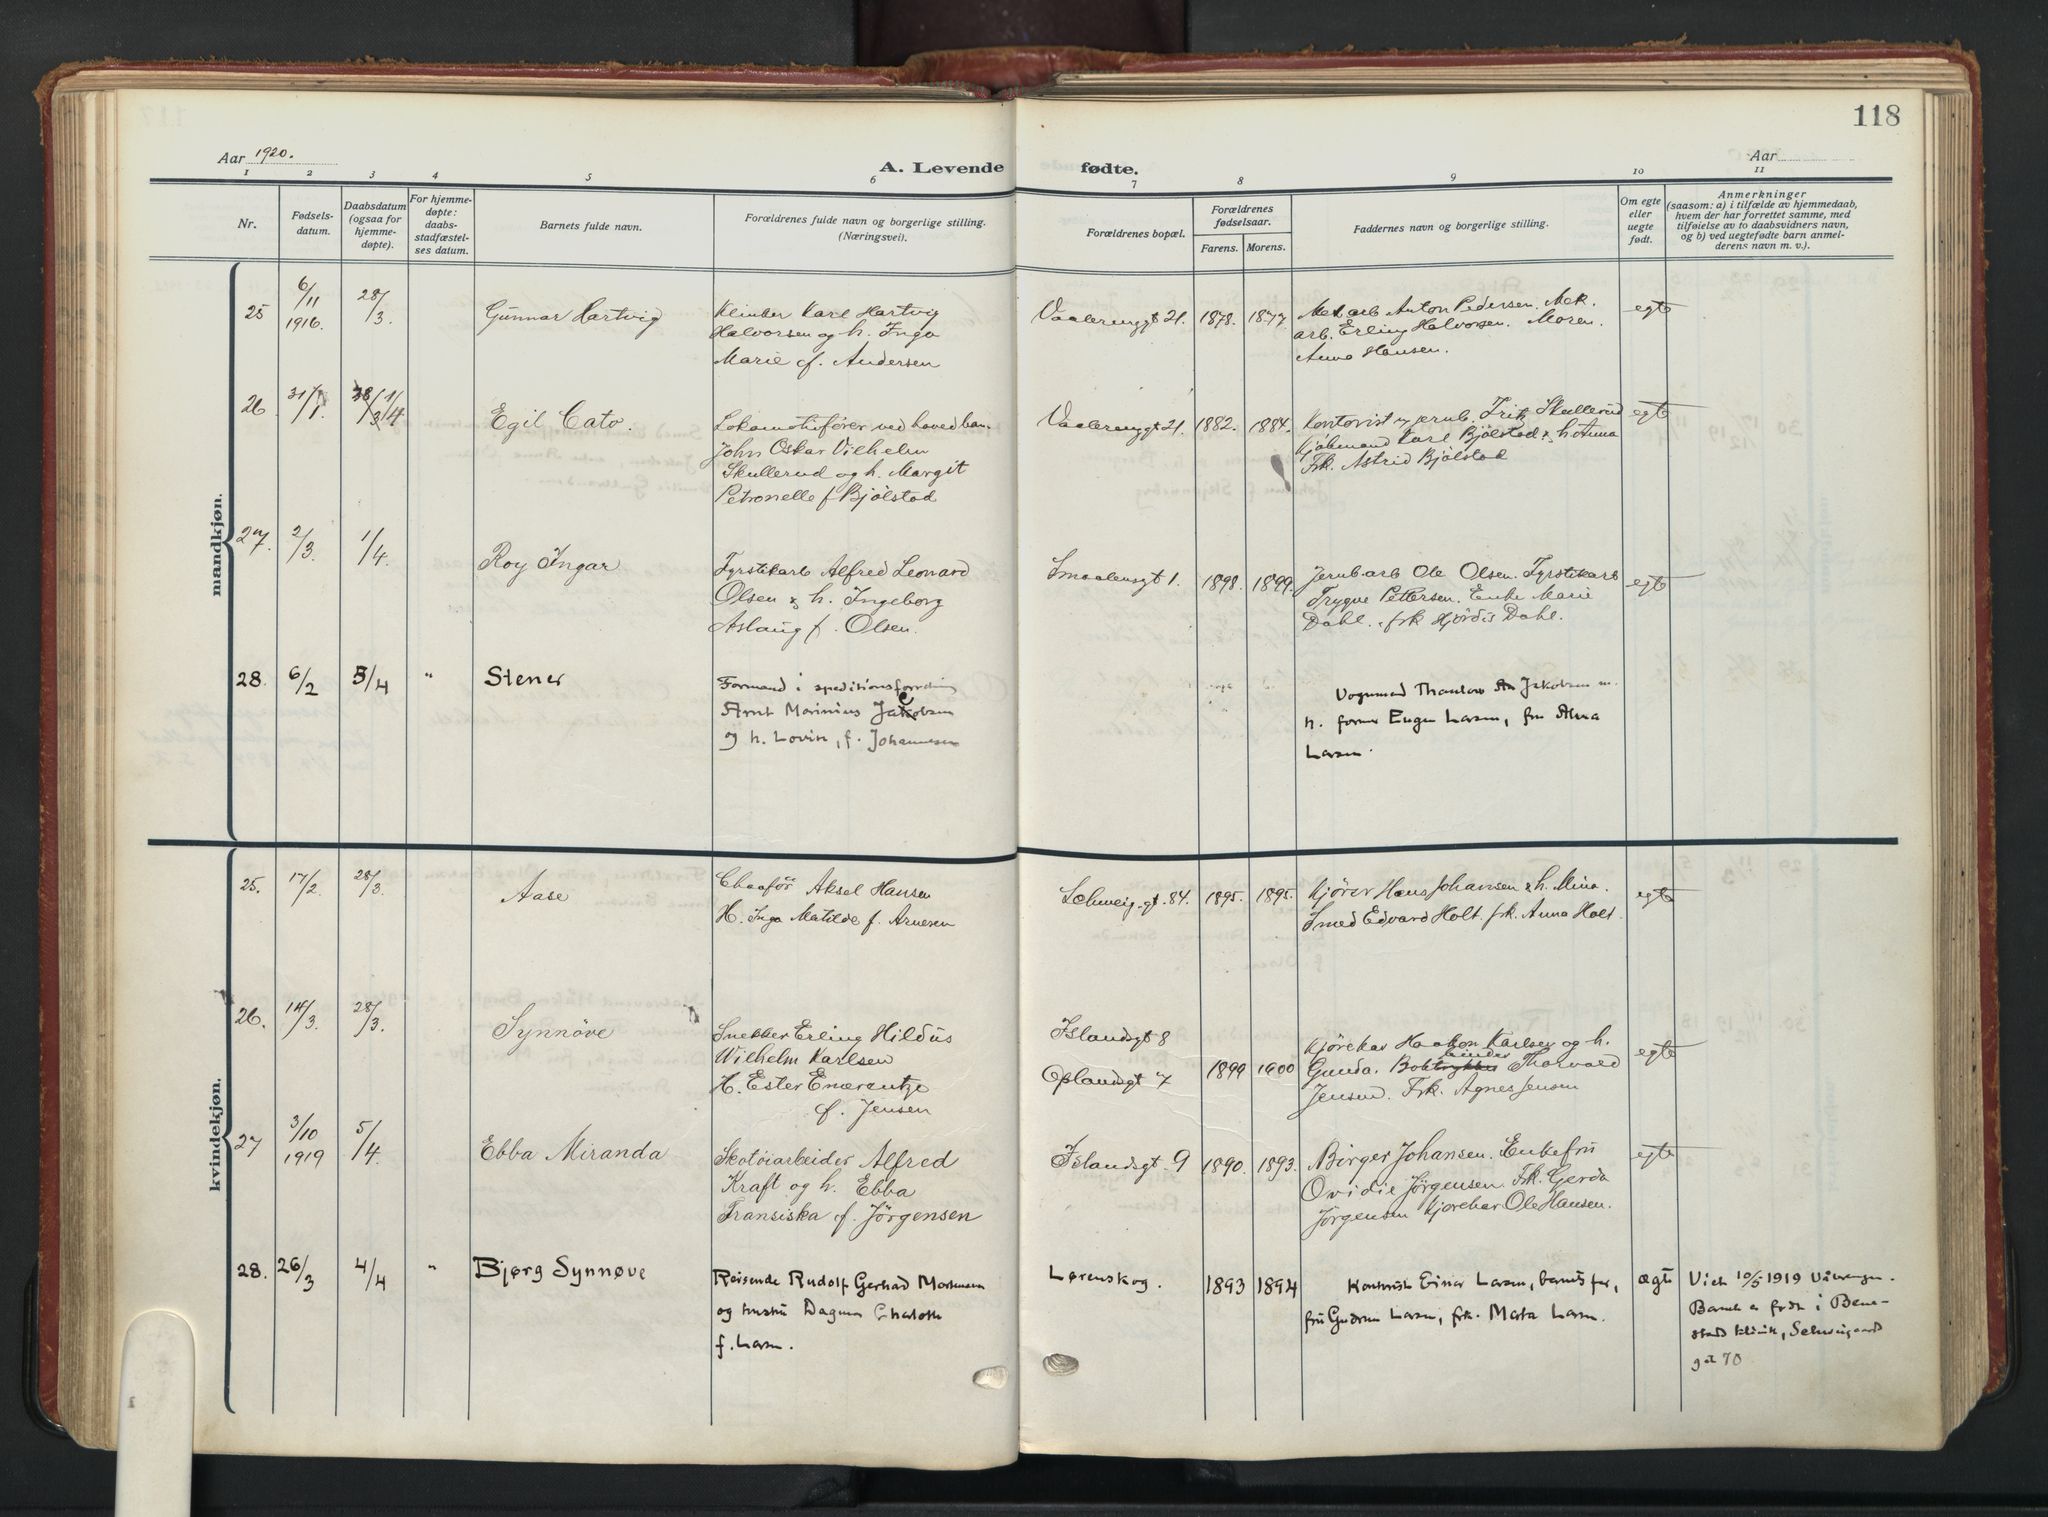 118
Aar 1920.
A. Levende fødte.
Aar
1 2 3 4 5 6 7 8 9 10 11
Nr.
Fødsels-
datum.
Daabsdatum
(ogsaa for
hjemme-
døpte).
For hjemme-
døpte:
daabs-
stadfæstel-
ses datum.
Barnets fulde navn.
Forældrenes fulde navn og borgerlige stilling.
(Næringsvei).
Forældrenes bopæl.
Forældrenes
fødselsaar.
Farens. Morens.
Faddernes navn og borgerlige stilling.
Om egte
eller
uegte
født.
Anmerkninger
(saasom: a) i tilfælde av hjemmedaab,
hvem der har forrettet samme, med
tilføielse av to daabsvidners navn,
og b) ved uegtefødte barn anmel-
derens navn m. v.).
mandkjøn.
25
6/11
1916.
28/3.
Gunnar Hartvig
Klinker Karl Hartvig
Halvorsen og h. Inga
Marie f. Andersen
Vaalerenggt 21.
1878. 1877.
Mek arb Anton Pedersen. Mek.
arb. Erling Halvorsen. Moren.
Anna Hansen.
egte
26
31/1.
28/3 1/4
Egil Cato.
Lokomotivfører ved hovedban.
John Oskar Vilhelm
Skullerud og h. Margit
Petronelle f Bjölstad
Vaalerenggt 21.
1882. 1884.
Kontorist v. jernb. Fritz Skullerud
Kjøbmand Karl Bjölstad & h. Anna
Frk. Astrid Bjölstad
egte
27.
2/3.
1/4.
Roy Ingar
Fyrstikarb Alfred Leonard
Olsen & h. Ingeborg
Aslaug f. Olsen.
Smaalensgt 1.
1898. 1899.
Jernb arb Ole Olsen. Fyrstikarb
Trygve Pettersen. Enke Marie
Dahl. frk Hjördis Dahl.
egte
28.
6/2
5/4
"
Stener
Formand i speditionsforretning
Arnt Marinius Jacobsen
og h. Lovise, f. Johannesen
Vognmand Thaulow Jakobsen m.
h. form Eugen Larsen, fru Alma
Larsen.
kvindekjøn.
25.
17/2.
28/3.
Aase
Chaufför Aksel Hansen
H. Inga Matilde f. Arnesen
Schweig. gt. 84.
1895. 1895.
Kjører Hans Johansen & h. Mina.
Smed Edvard Holt. frk. Anna Holt.
egte
26.
14/3.
28/3.
Synnöve
Snekker Erling Hildus
Wilhelm Karlsen
H. Ester Emerentze
f. Jensen
Islandsgt 8
Oplandsgt 7
1899 1900
Kjörekar Haakon Karlsen og h.
Gunda. Bokbinder Thorvald
Jensen. Frk. Agnes Jensen
egte
27
3/10
1919
5/4.
Ebba Miranda
Skotöiarbeider Alfred
Kraft og h. Ebba
Fransiska f. Jörgensen
Islandsgt. 9
1890. 1893.
Birger Johansen. Enkefru
Ovidie Jörgensen. Frk. Gerda
Jörgensen Kjörekar Ole Hansen.
egte
28.
26/3
4/4
"
Bjørg Synnøve
Reisende Rudolf Gerhard Mortensen
og hustru Dagmar Charlotte
f. Larsen.
Lørenskog.
1893 1894
Kontorist Einar Larsen, barnets far,
fru Gudrun Larsen, frk. Marta Larsen.
ægte
Viet 10/5 1919 Vålerengen.
Barnet er født i Bene-
stads klinik, Schweigaards
gt 70